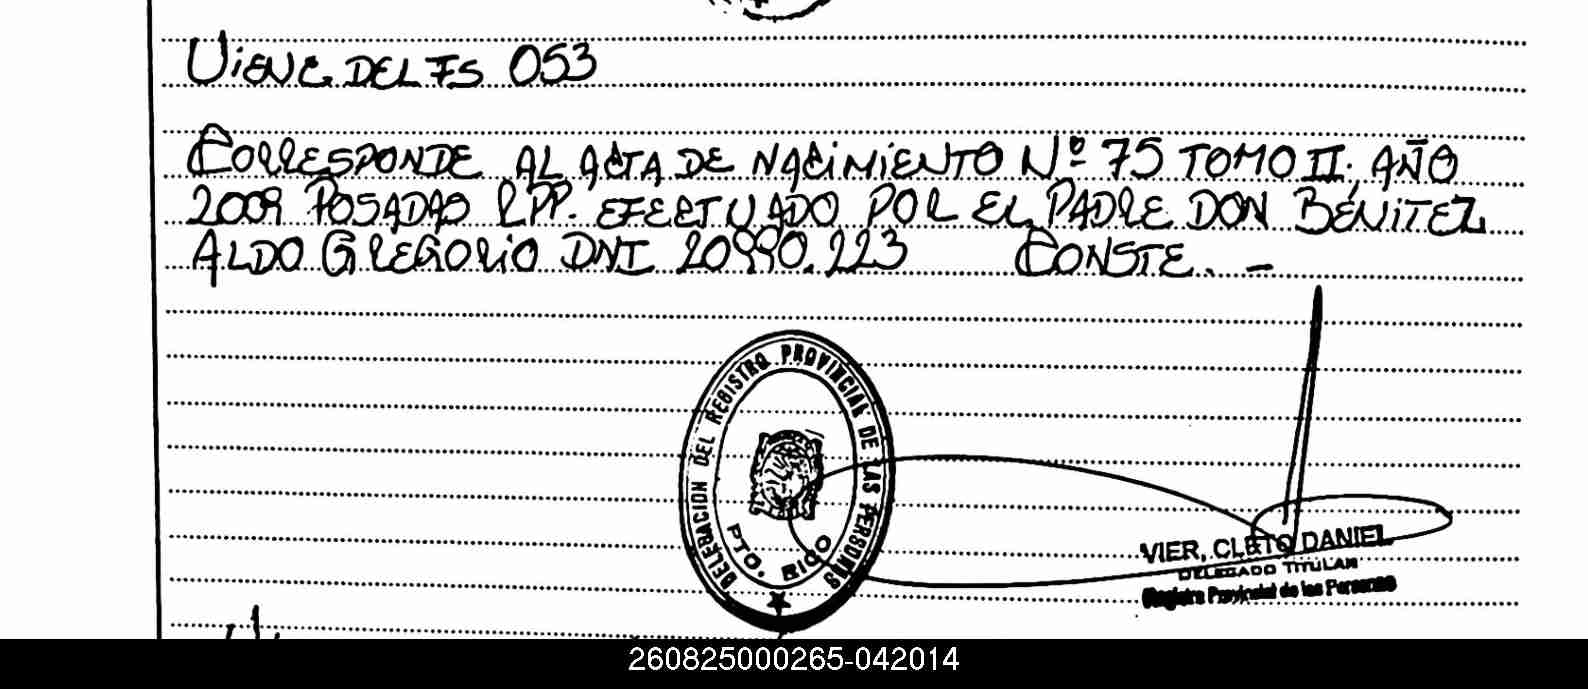 Viene del Fs 053
Corresponde al acta de nacimiento Nº 75 Tomo II; año
2009 Posadas RPP. efectuado por el padre Don Benitez
Aldo Gregorio DNI 20990.223 Conste. -
DELEGACION DEL REGISTRO PROVINCIAL DE LAS PERSONAS
PTO. RICO
VIER, CLETO DANIEL
DELEGADO TITULAR
Registro Provincial de las Personas
260825000265-042014